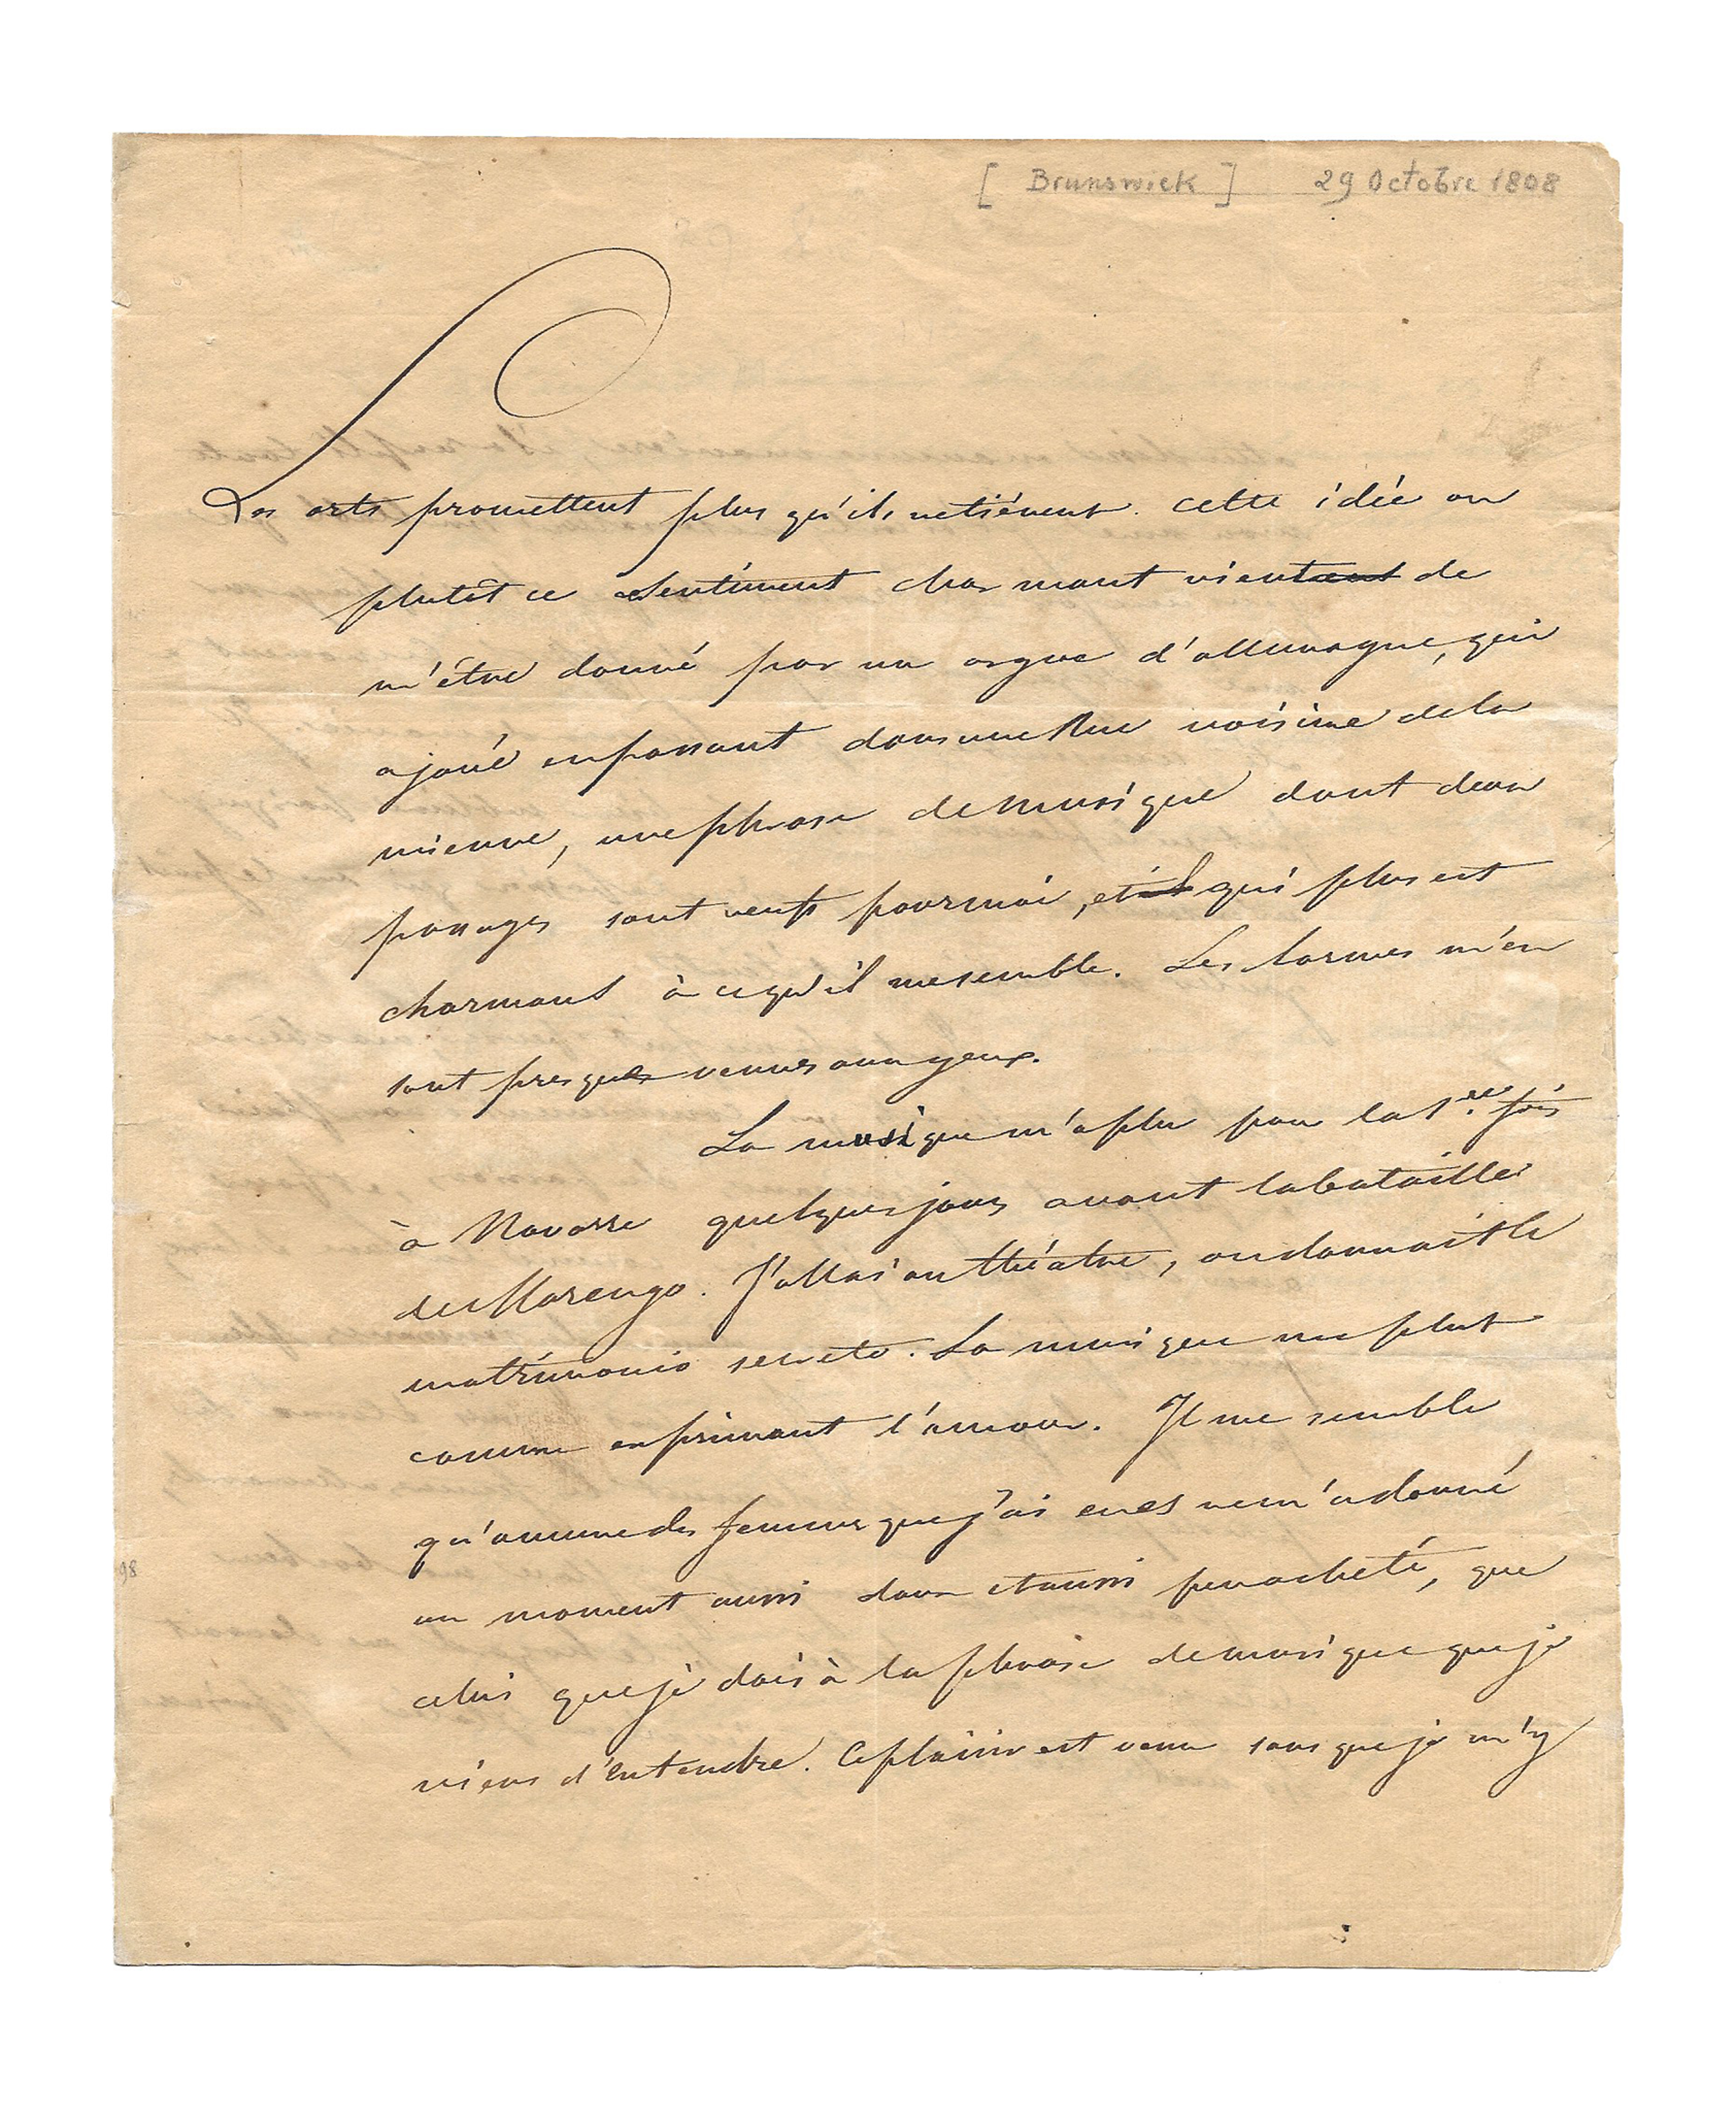 [ Brunswick ] 29 Octobre 1808
Les arts promettent plus qu'ils netiénent. cette idée ou
plutôt ce sentiment charmant vient de
m'être donné par un orgue d'allemagne, qui
ajoué enpassant dans une Rue voisine dela
mienne, une phrase de musique dont deux
passages sont neufs pourmoi, et qui plus est
charmans à cequ'il mesemble. Les larmes m'en
sont presque venues aux yeux.
La musique m'a plu pour la 1ere fois
à Novarre quelques jours avant labataille
de Marengo. J'allai au théatre, on donnait le
matrimonio secreto. La musique me plut
comme exprimant l'amour. Il me semble
qu'aucune des femmes que j'ai eues ne m'a donné
un moment aussi doux et aussi peu acheté, que
celui que je dois à la phrase de musique que je
viens d'entendre. Ce plaisir est venu sans que je m'y
98